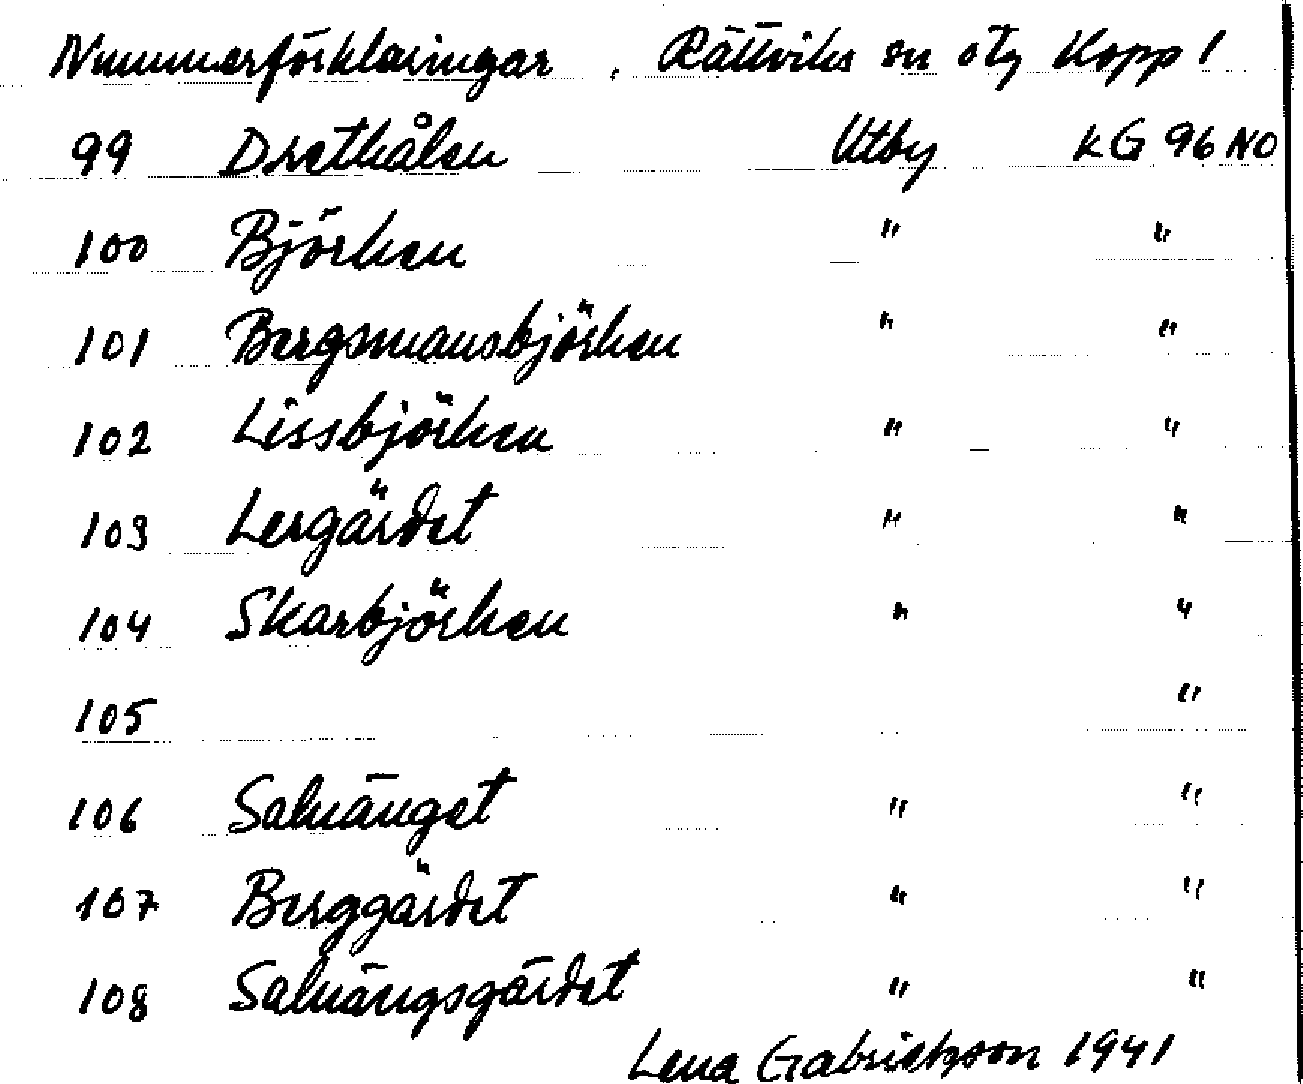 Nummerförklaringar, Rättviks sn ötg Kopp 1
99 Drethålen Utby KG 96 NO
100 Björken " "
101 Bergsmansbjörken " "
102 Lissbjörken " "
103 Lergärdet " "
104 Skarbjörken " "
105 "
106 Saluänget " "
107 Berggärdet " "
108 Saluängsgärdet " "
Lena Gabrielsson 1941